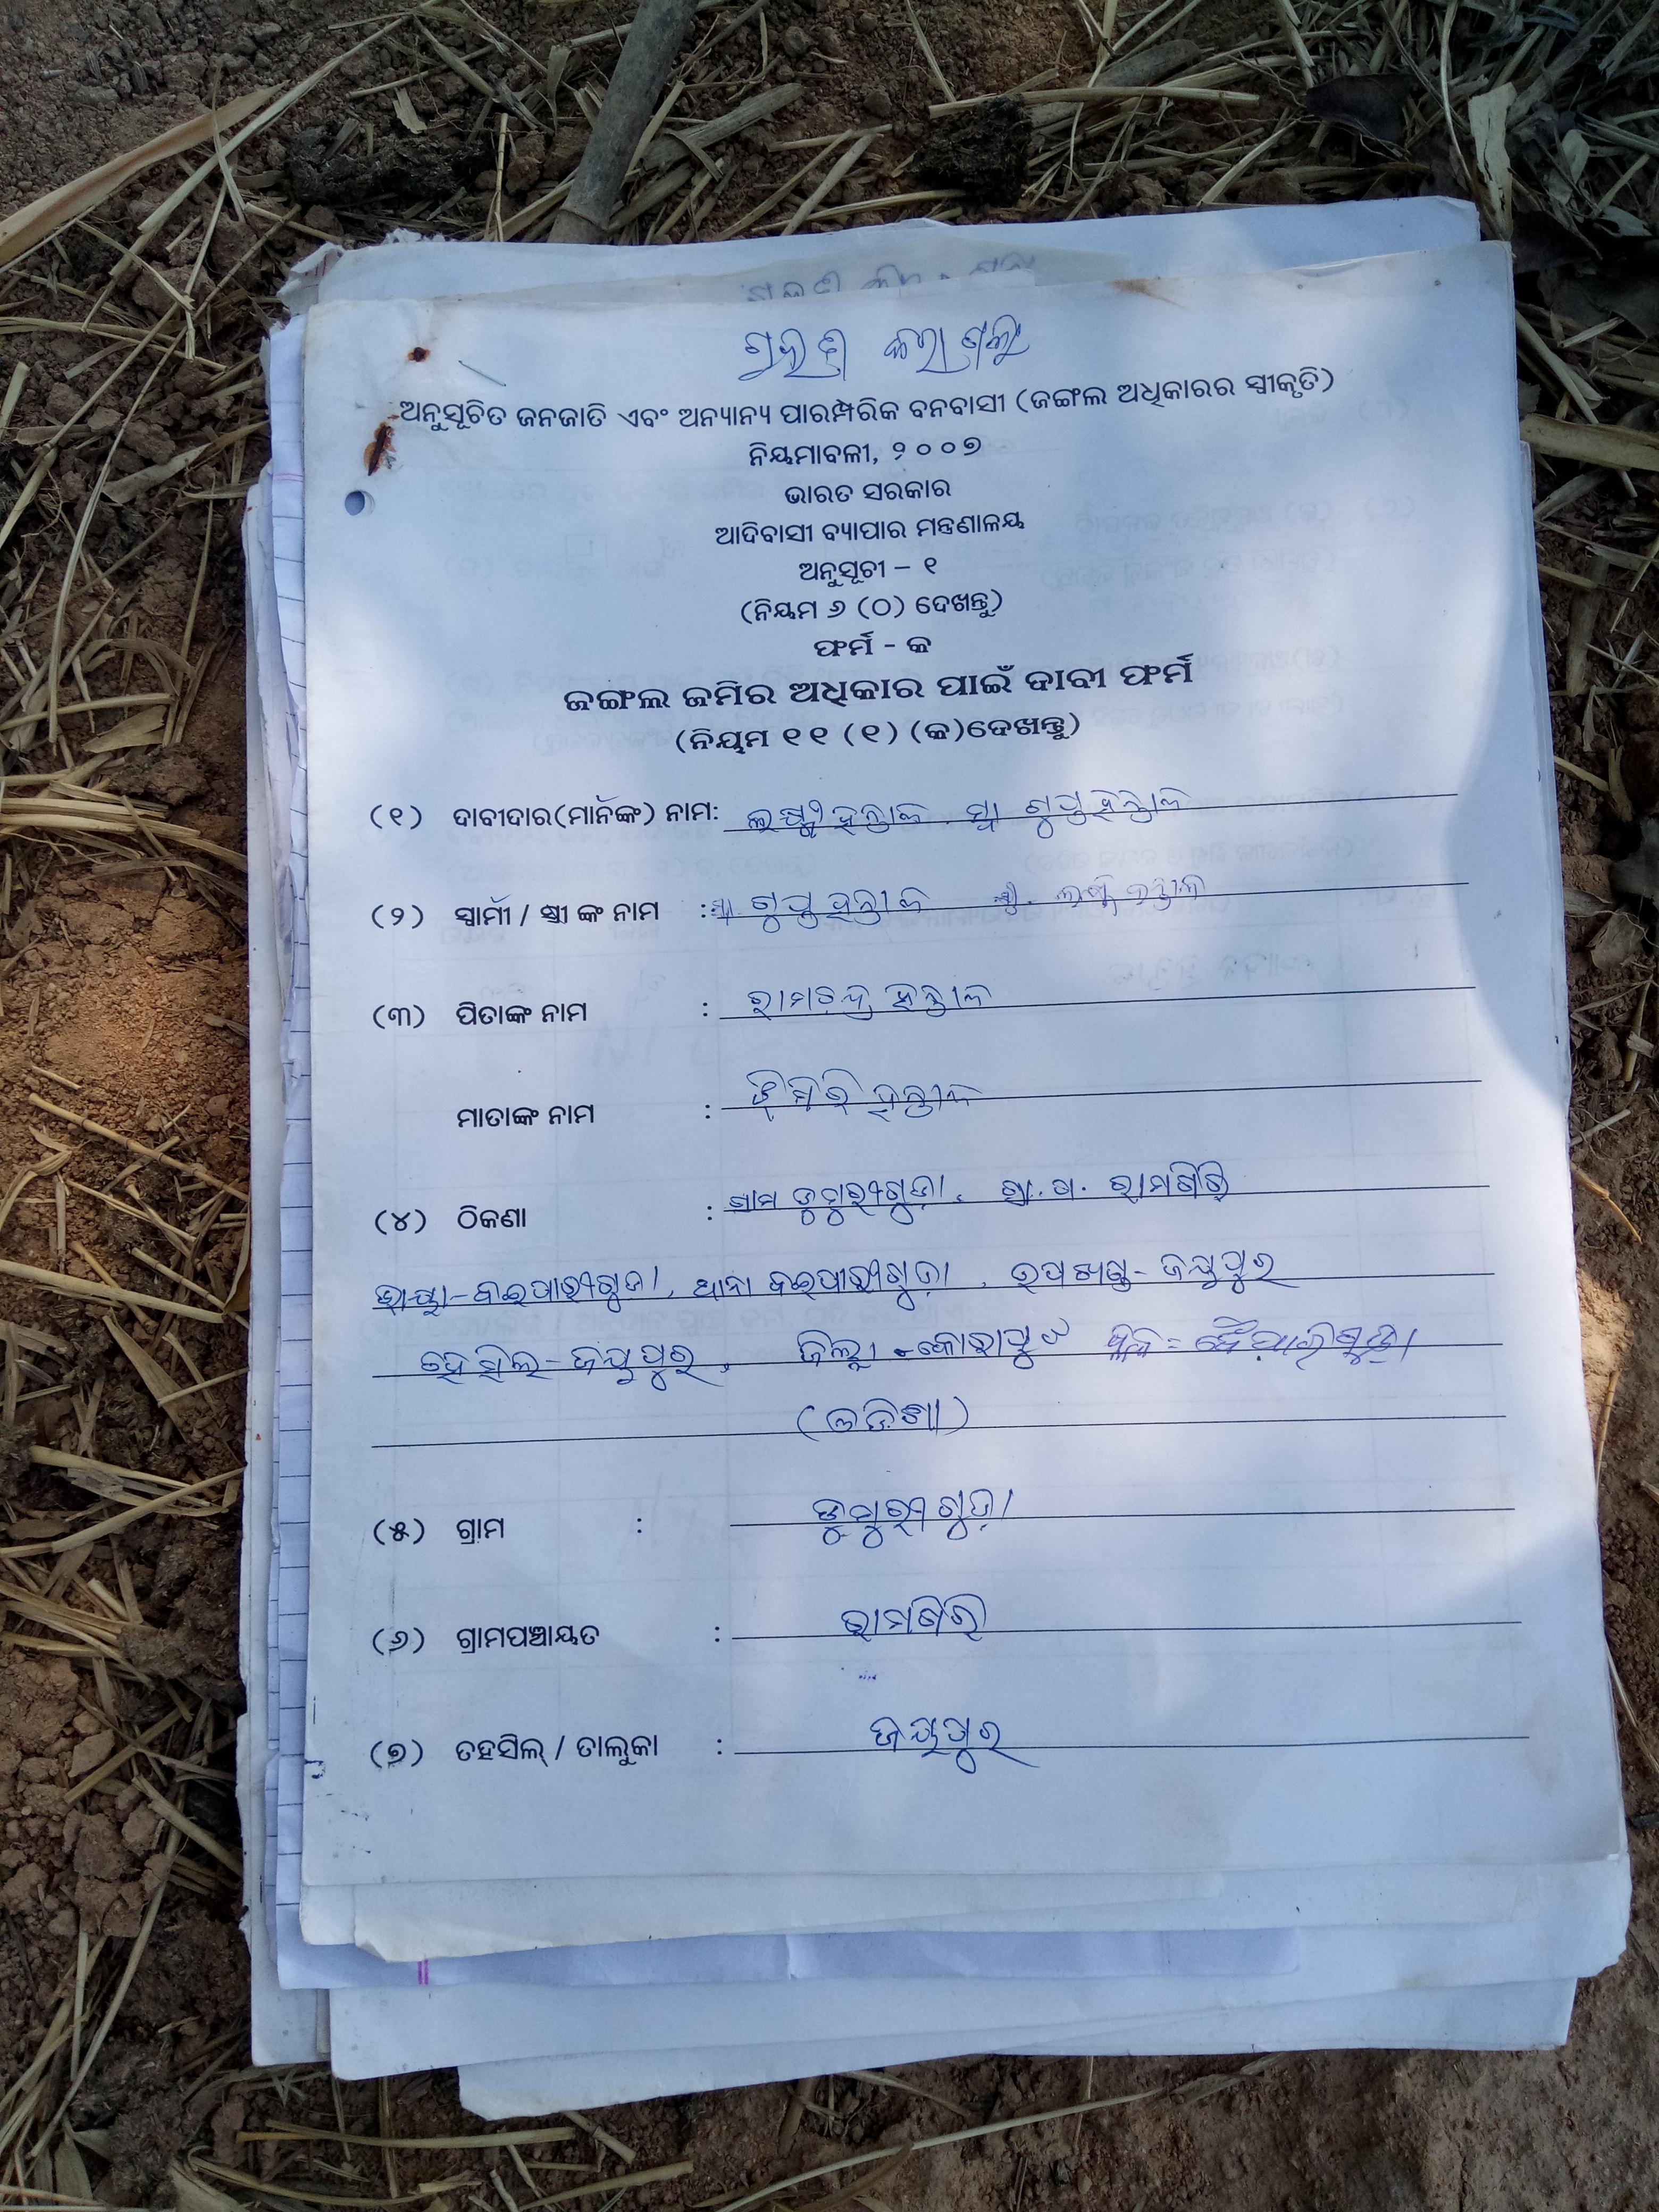 ଅନୁସୂଚିତ ଜନଜାତି ଏବଂ ଅନ୍ୟାନ୍ୟ ପାରମ୍ପରିକ ବନବାସୀ (ଜଙ୍ଗଲ ଅଧିକାରର ସ୍ୱୀକୃତି)
ନିୟମାବଳୀ, ୨୦୦୭
ଭାରତ ସରକାର
ଆଦିବାସୀ ବ୍ୟାପାର ମନ୍ତ୍ରଣାଳୟ
ଅନୁସୂଚୀ – ୧
(ନିୟମ ୬ (ଠ) ଦେଖନ୍ତୁ)
ଫର୍ମ - କ
ଜଙ୍ଗଲ ଜମିର ଅଧିକାର ପାଇଁ ଦାବୀ ଫର୍ମ
(ନିୟମ ୧୧ (୧) (କ)ଦେଖନ୍ତୁ)
(୧) ଦାବୀଦାର(ମାନଙ୍କ) ନାମ:
(୨) ସ୍ୱାମୀ / ସ୍ତ୍ରୀ ଙ୍କ ନାମ :
(୩) ପିତାଙ୍କ ନାମ : ରାମଚନ୍ଦ୍ର ହନ୍ତାଳ
ମାତାଙ୍କ ନାମ : ହନ୍ତାଳ
(୪) ଠିକଣା : ଗ୍ରାମ ଡୁମୁରୀଗୁଡ଼ା, ଗ୍ରା.ପ. ରାମଗିରି
ଭାୟା-ବଇପାରୀଗୁଡ଼ା, ଥାନା ବଇପାରୀଗୁଡ଼ା, ଉପଖଣ୍ଡ- ଜୟପୁର
ଜୟପୁର, ଜିଲ୍ଲା - କୋରାପୁଟ
(ଓଡ଼ିଶା)
(୫) ଗ୍ରାମ : ଡୁମୁରୀଗୁଡ଼ା
(୬) ଗ୍ରାମପଞ୍ଚାୟତ : ରାମଗିରି
(୭) ତହସିଲ୍ / ତାଲୁକା : ଜୟପୁର